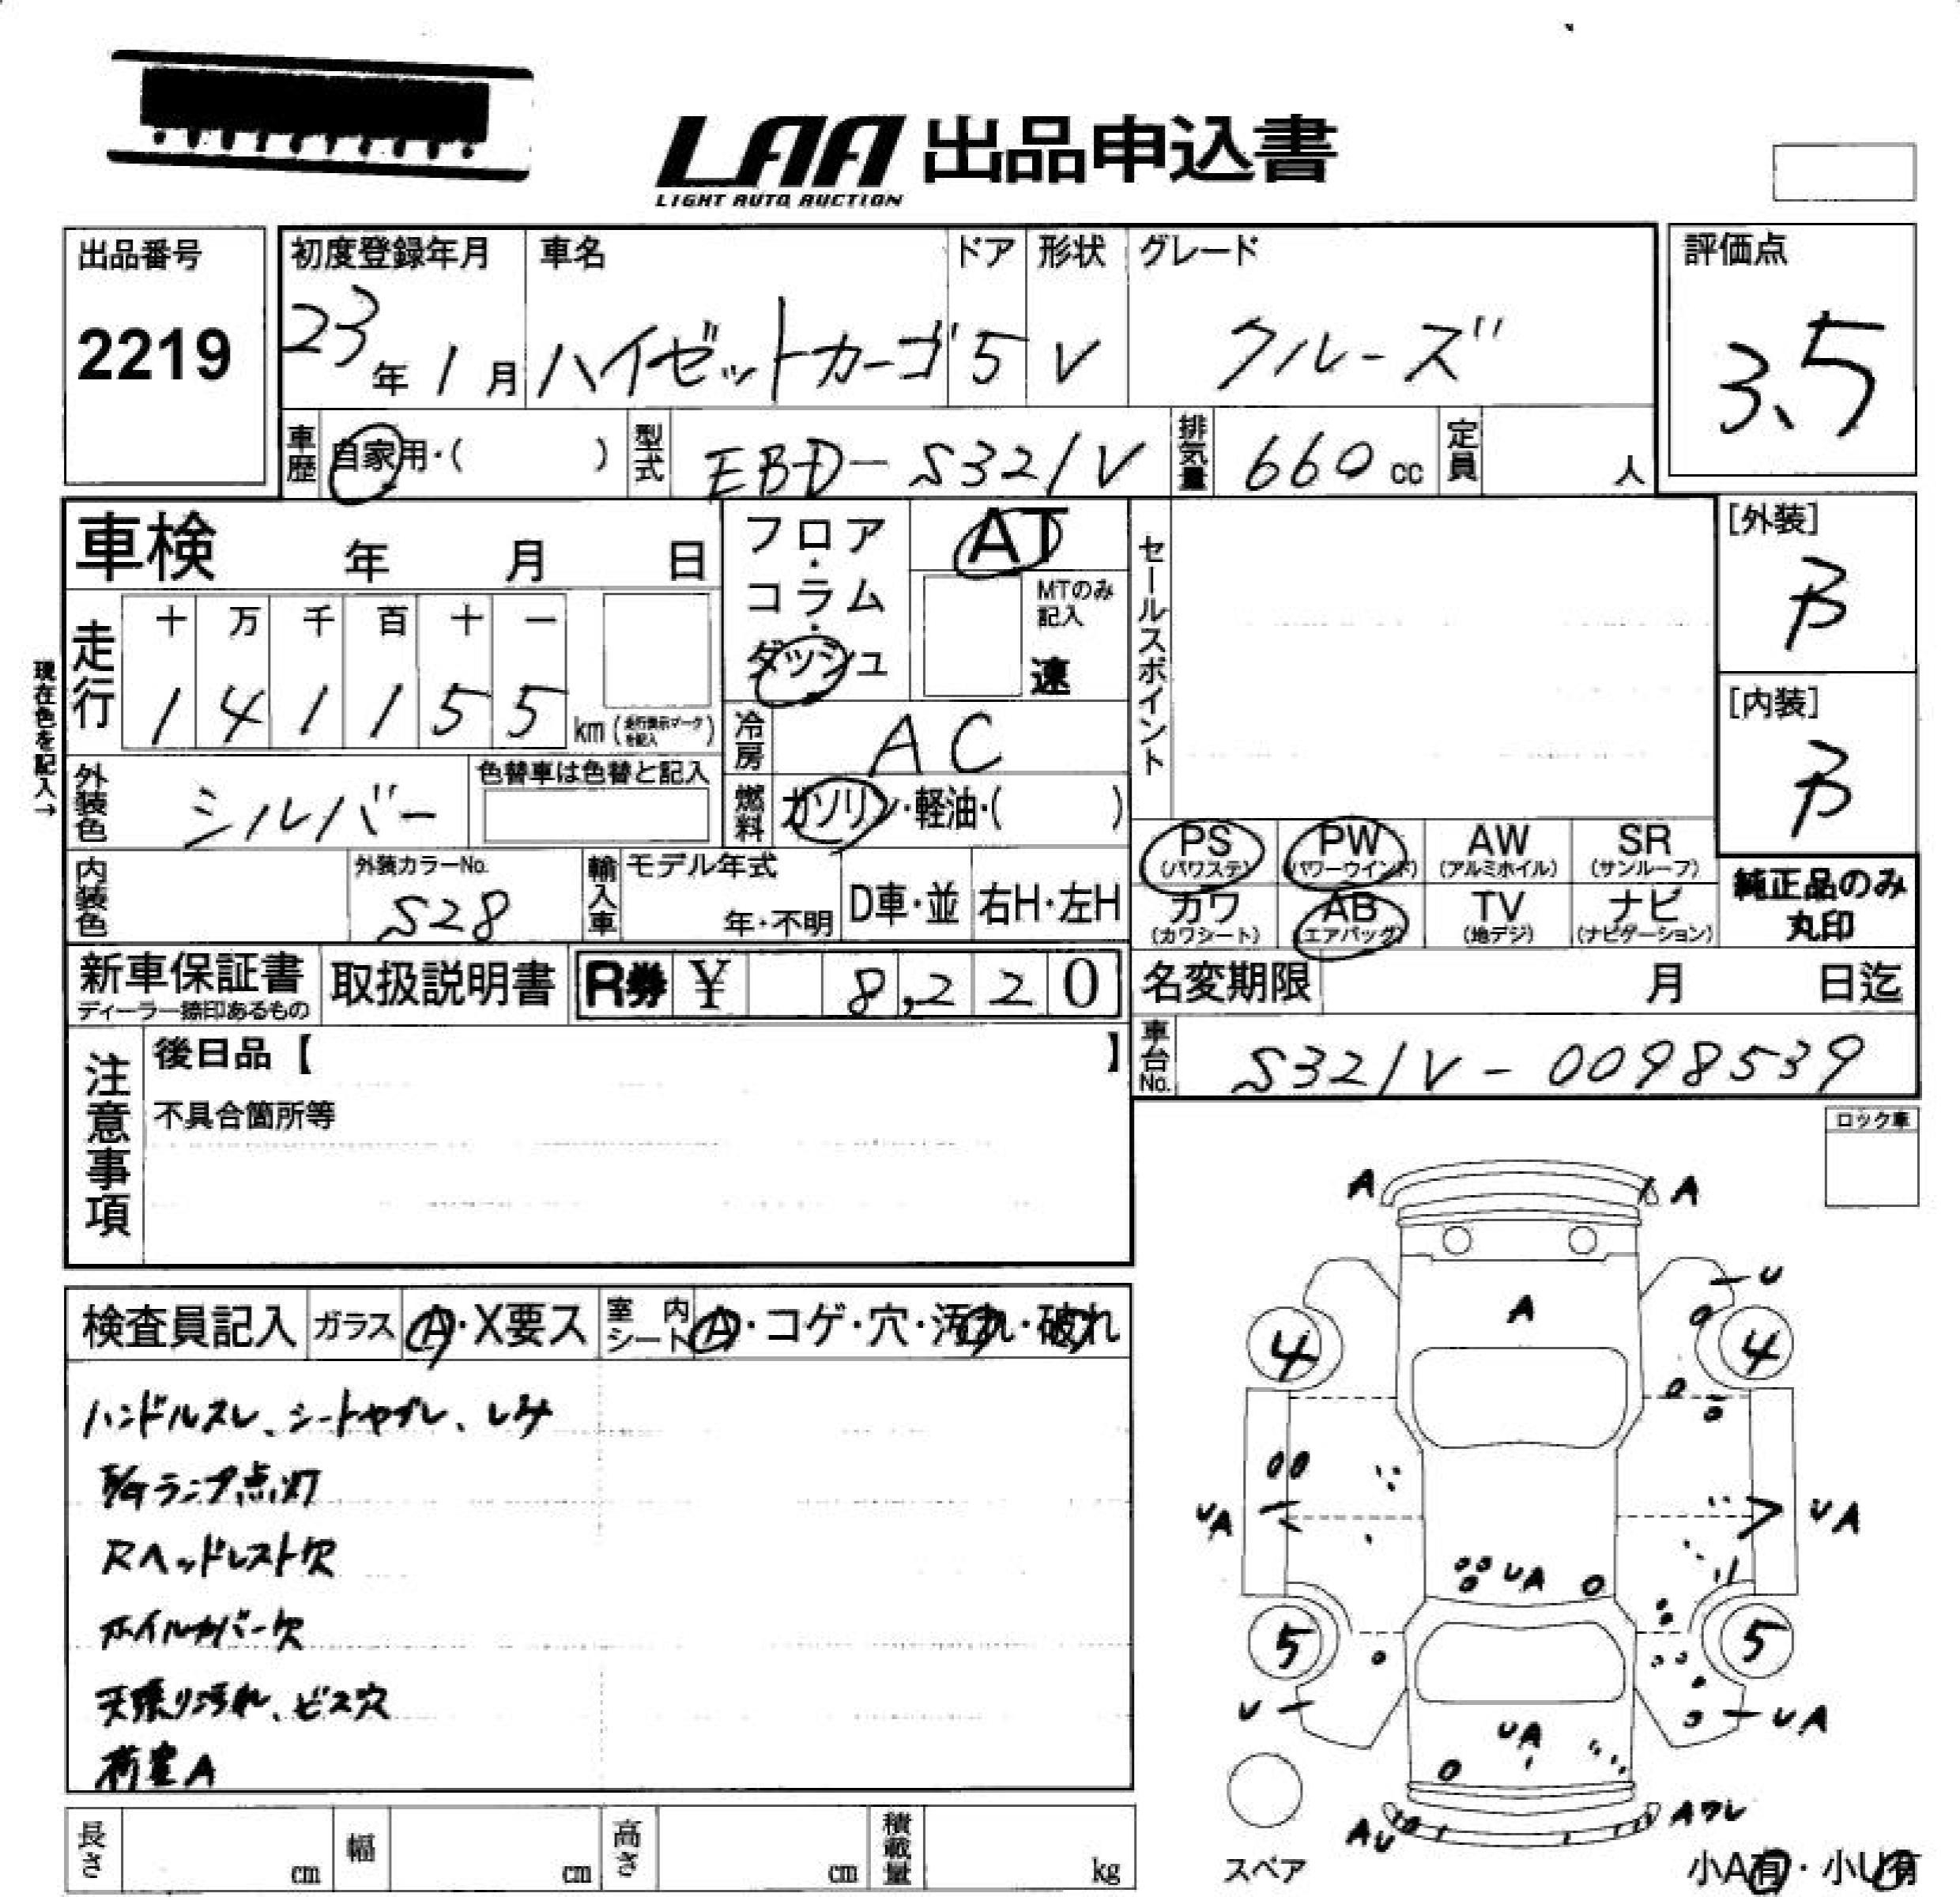 LAA 出品申込書
LIGHT AUTO AUCTION
出品番号
2219
初度登録年月
23年 1月
車名
ハイゼットカーゴ
ドア
5
形状
V
グレード
クルーズ
評価点
3.5
車歴 自家用・( )
型式 EBD-S321V
排気量 660cc
定員 人
車検 年 月 日
フロア・コラム・ダッシュ
AT
MTのみ記入
速
セールスポイント
[外装]
B
[内装]
B
現在色を記入→
走行
十 万 千 百 十 一
1 4 1 1 5 5 km (走行表示マークを記入)
冷房 AC
外装色 シルバー
色替車は色替と記入
燃料 ガソリン・軽油・( )
PS (パワステ) PW (パワーウインド) AW (アルミホイル) SR (サンルーフ)
内装色
外装カラーNo.
S28
輸入車
モデル年式
年・不明
D車・並
右H・左H
カワ (カワシート) AB (エアバッグ) TV (地デジ) ナビ (ナビゲーション)
純正品のみ丸印
新車保証書
ディーラー捺印あるもの
取扱説明書
R券 ¥ 8,220
名変期限 月 日迄
車台No. S321V-0098539
注意事項
後日品【 】
不具合箇所等
ロック車
検査員記入 ガラス A・X要ス 室内シート A・コゲ・穴・汚れ・破れ
ハンドルスレ、シートヤブレ、しみ
ランプ点灯
Rヘッドレスト欠
ホイルカバー欠
天張り汚れ、ビス穴
荷室A
A A
U
A
4 4
UA UA
UA
5 5
U UA
UA
AU Aワレ
スペア
小A有・小U有
長さ cm 幅 cm 高さ cm 積載量 kg